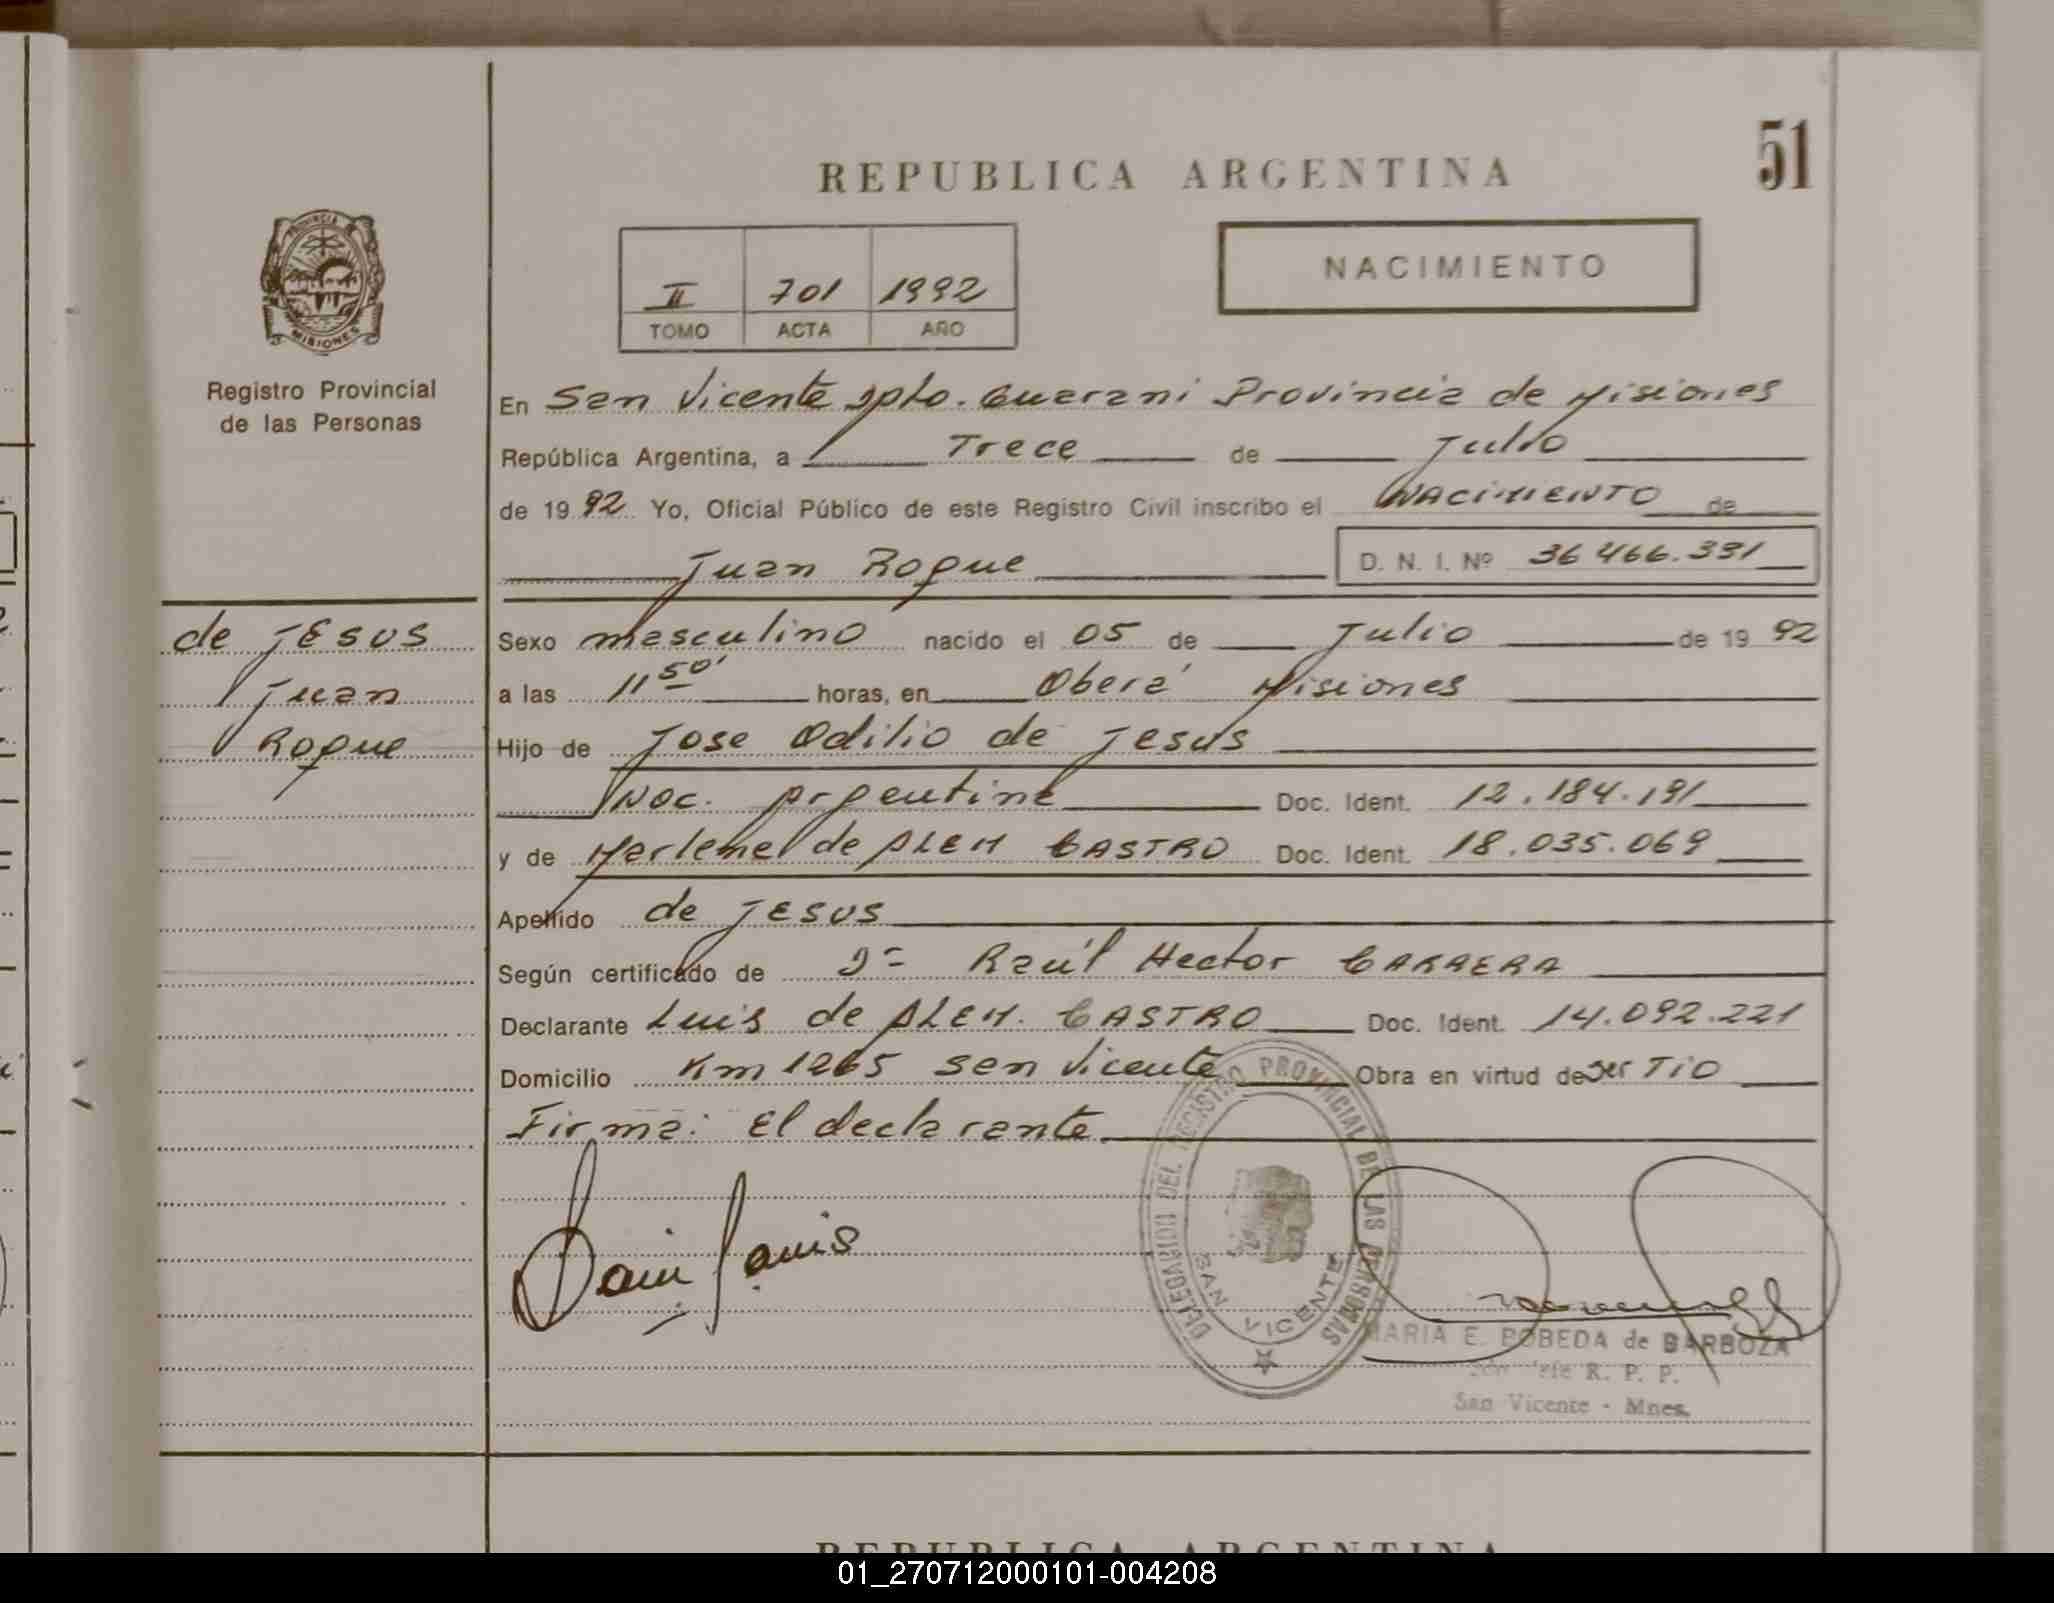 51
REPUBLICA ARGENTINA
PROVINCIA DE MISIONES
Registro Provincial
de las Personas
II 701 1992
TOMO ACTA AÑO
NACIMIENTO
En San Vicente Dpto. Guarani Provincia de Misiones
República Argentina, a Trece de Julio
de 1992 Yo, Oficial Público de este Registro Civil inscribo el NACIMIENTO de
Juan Roque D. N. I. Nº 36 466.331
de JESUS
Juan
Roque
Sexo masculino nacido el 05 de Julio de 1992
a las 11 50' horas, en Oberá Misiones
Hijo de Jose Odilio de Jesus
Nac. Argentina Doc. Ident. 12.184.191
y de Marlene de ALEM CASTRO Doc. Ident. 18.035.069
Apellido de JESUS
Según certificado de Dr Raúl Hector CARRERA
Declarante Luis de ALEM. CASTRO Doc. Ident. 14.092.221
Domicilio Km 1265 San Vicente Obra en virtud de ser Tio
Firma: El declarante
DELEGACION DEL REGISTRO PROVINCIAL DE LAS PERSONAS
SAN VICENTE
MARIA E. POBEDA de BARBOZA
R. P. P.
San Vicente - Mnes.
REPUBLICA ARGENTINA
01_270712000101-004208